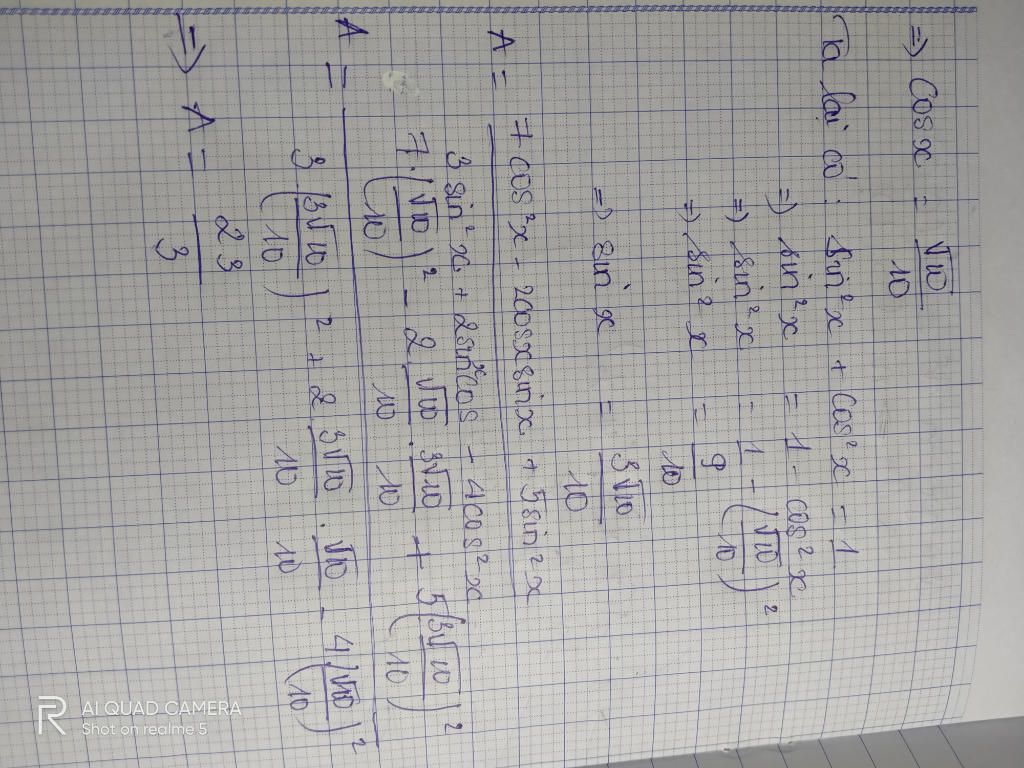 => Cos x = √10/10
Ta lại có: sin²x + cos²x = 1
=> sin²x = 1 - cos²x
=> sin²x = 1 - (√10/10)²
=> sin²x = 9/10
=> sin x = 3√10/10
A = 7cos²x - 2cosxsinx + 5sin²x
3sin²x + 2sinxcos - 4cos²x
A = 7.(√10/10)² - 2 √10/10 . 3√10/10 + 5(3√10/10)²
3(3√10/10)² + 2 3√10/10 . √10/10 - 4(√10/10)²
=> A = 23/3
AI QUAD CAMERA
Shot on realme 5